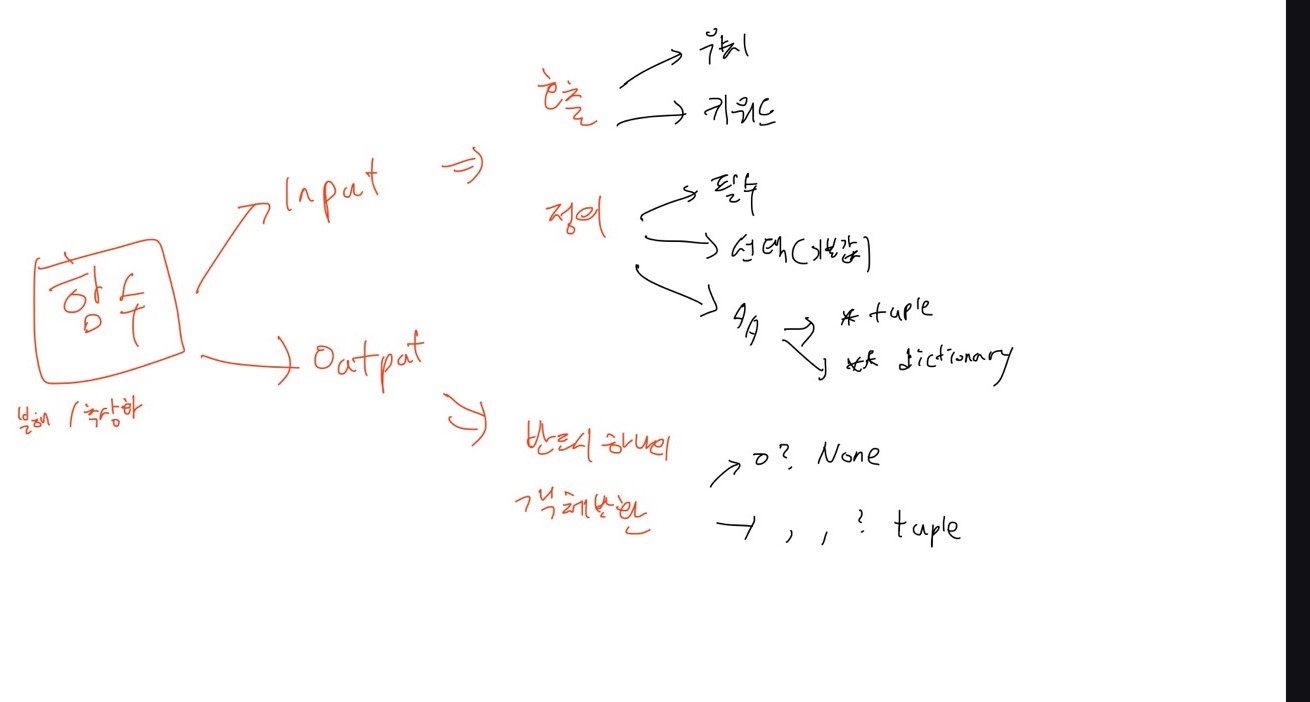 함수
분해 / 추상화
Input
호출
위치
키워드
정의
필수
선택(기본값)
* tuple
** dictionary
Output
반드시 하나의
객체 반환
0? None
, , ? tuple